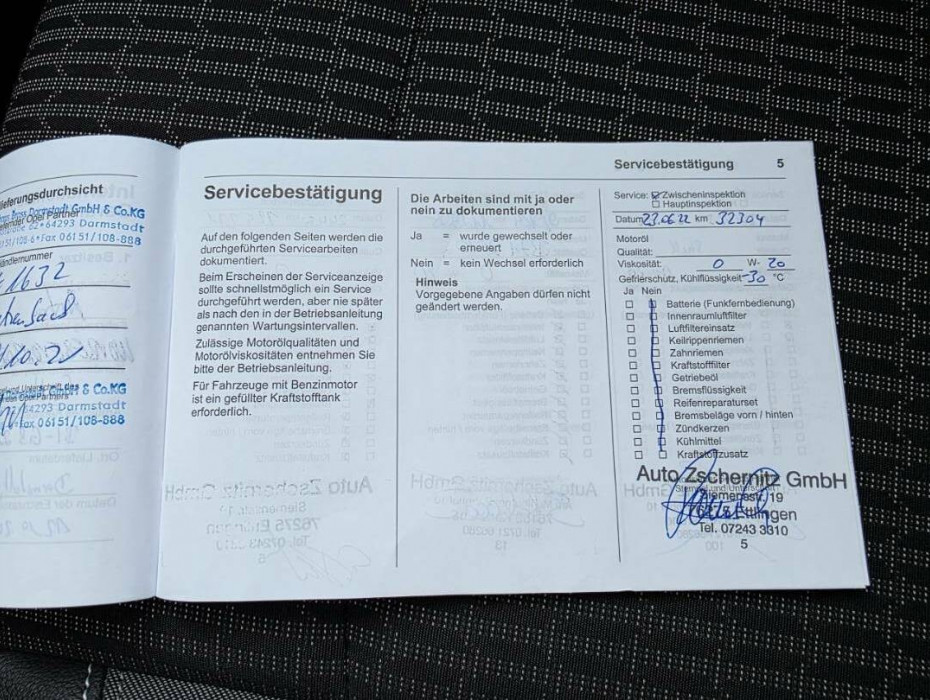 Servicebestätigung 5
ieferungsdurchsicht
Darmstadt GmbH & Co.KG
Opel Partner
64293 Darmstadt
Fax 06151/108-888
1632
& Co.KG
64293 Darmstadt
Fax 06151/108-888
Servicebestätigung
Auf den folgenden Seiten werden die
durchgeführten Servicearbeiten
dokumentiert.
Beim Erscheinen der Serviceanzeige
sollte schnellstmöglich ein Service
durchgeführt werden, aber nie später
als nach den in der Betriebsanleitung
genannten Wartungsintervallen.
Zulässige Motorölqualitäten und
Motorölviskositäten entnehmen Sie
bitte der Betriebsanleitung.
Für Fahrzeuge mit Benzinmotor
ist ein gefüllter Kraftstofftank
erforderlich.
Die Arbeiten sind mit ja oder
nein zu dokumentieren
Ja = wurde gewechselt oder
erneuert
Nein = kein Wechsel erforderlich
Hinweis
Vorgegebene Angaben dürfen nicht
geändert werden.
Service: Zwischeninspektion
Hauptinspektion
Datum 23.06.22 km 32304
Motoröl
Qualität:
Viskosität: 0 W- 20
Gefrierschutz, Kühlflüssigkeit -30 °C
Ja Nein
Batterie (Funkfernbedienung)
Innenraumluftfilter
Luftfiltereinsatz
Keilrippenriemen
Zahnriemen
Kraftstofffilter
Getriebeöl
Bremsflüssigkeit
Reifenreparaturset
Bremsbeläge vorn / hinten
Zündkerzen
Kühlmittel
Kraftstoffzusatz
Auto Zschernitz GmbH
Stempel und Unterschrift
Siemensstr. 19
76275 Ettlingen
Tel. 07243 3310
5